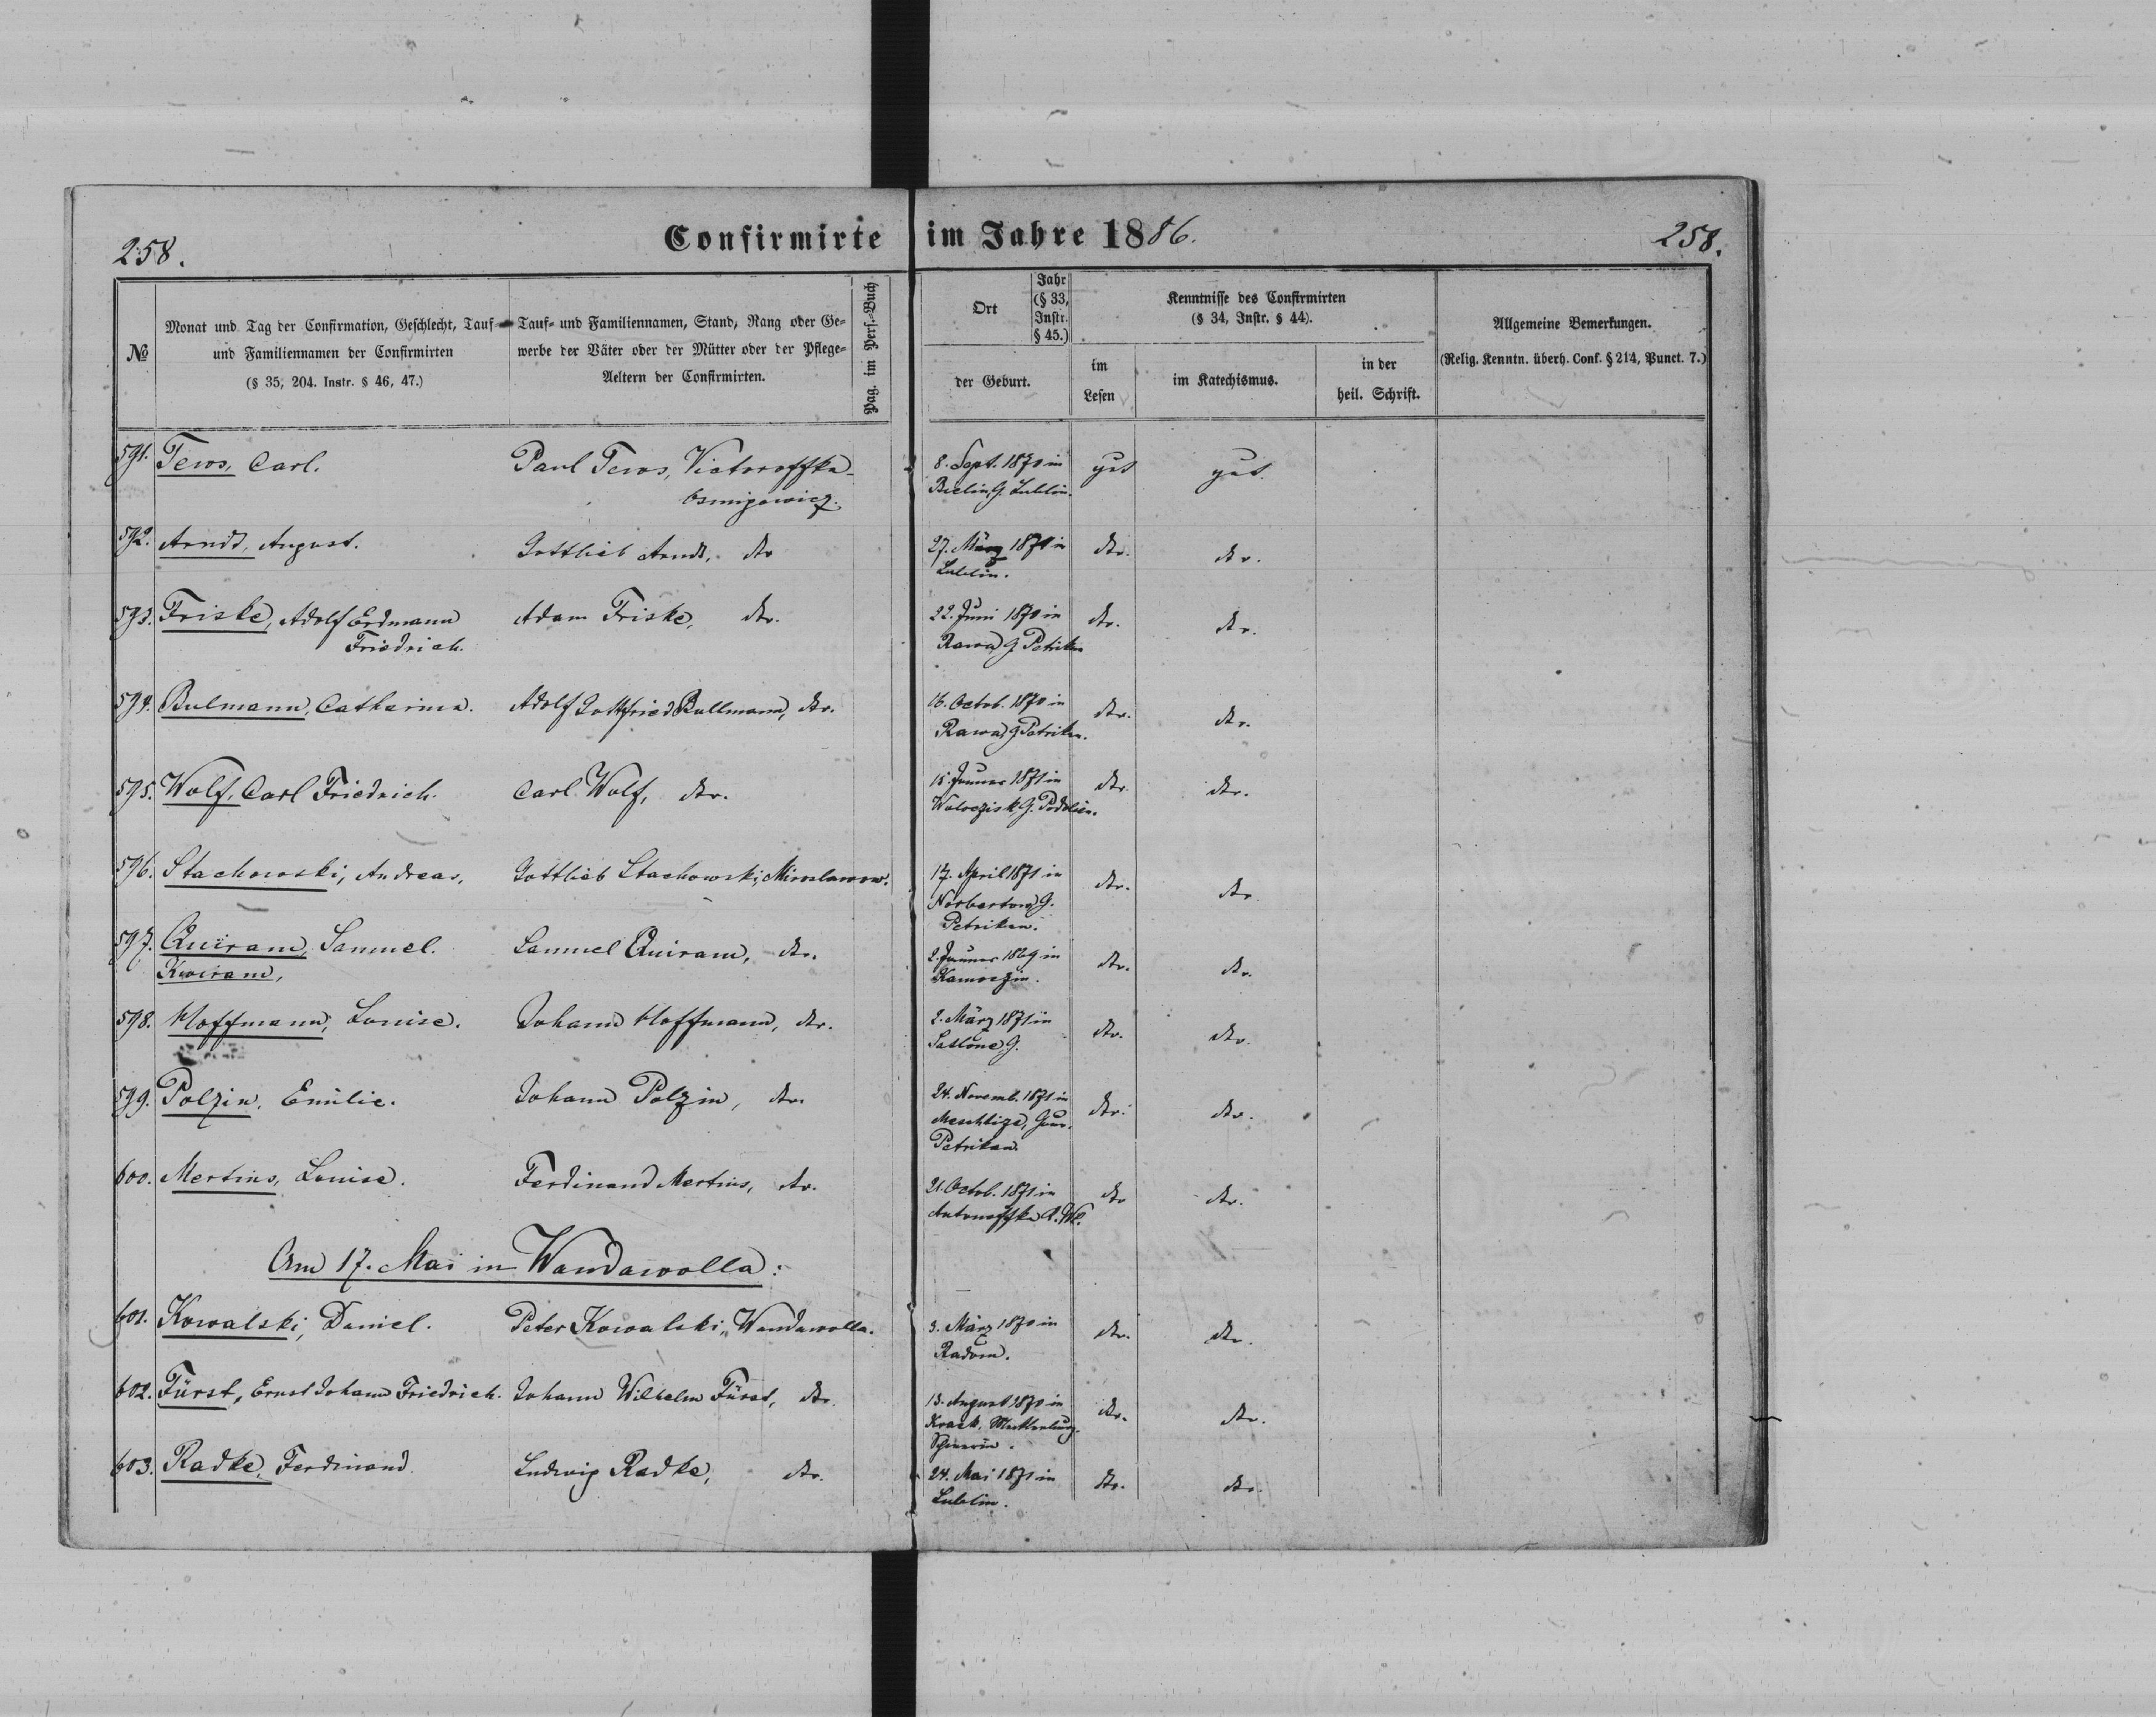 258.
Confirmirte im Jahre 1886.
258.
№
Monat und Tag der Confirmation, Geschlecht, Tauf-
und Familiennamen der Confirmirten
(§ 35, 204. Instr. § 46, 47.)
Tauf- und Familiennamen, Stand, Rang oder Ge-
werbe der Väter oder der Mütter oder der Pflege-
Aeltern der Confirmirten.
Pag. im Pers.-Buch
Ort
Jahr
(§ 33,
Instr.
§ 45.)
der Geburt.
Kenntnisse des Confirmirten
(§ 34, Instr. § 44).
im
Lesen
im Katechismus.
in der
heil. Schrift.
Allgemeine Bemerkungen.
(Relig. Kenntn. überh. Conf. § 214, Punct. 7.)
591. Tews, Carl. Paul Tews, Victoroffka- 8. Sept. 1870 in gut gut.
Osmigowicz. Bielin, G. Lublin.
592. Arndt, August. Gottlieb Arndt, dto 27. März 1871 in dto. dto.
Lublin.
593. Friske, Adolf Erdmann Adam Friske, dto. 22. Juni 1870 in dto. dto.
Friedrich. Rawa, G Petrikau
594. Bulmann, Catharina. Adolf Gottfried Bullmann, dto. 16. Octob. 1870 in dto. dto.
Rawa, G Petrikau.
595. Wolf, Carl Friedrich. Carl Wolf, dto. 15. Januar 1871 in dto. dto.
Woloczisk, G. Podolien.
596. Stachowski, Andreas. Gottlieb Stachowski, Miroslawow. 17. April 1871 in dto. dto.
Norbertow, G.
Petrikau.
597. Quiram, Samuel. Samuel Quiram, dto. 2. Januar 1869 in dto. dto.
Kwiram, Kamoczin.
598. Hoffmann, Louise. Johann Hoffmann, dto. 2. März 1871 in dto. dto.
G.
599. Polzin, Emilie. Johann Polzin, dto. 24. Novemb. 1871 in dto. dto.
Gouv.
Petrikau.
600. Mertins, Louise. Ferdinand Mertins, dto. 21. Octob. 1871 in dto dto.
Antonoffka
Am 17. Mai in Wandawolla:
601. Kowalski, Daniel. Peter Kowalski, Wandawolla. 3. März 1870 in dto. dto.
Radom.
602. Fürst, Ernst Johann Friedrich. Johann Wilhelm Fürst, dto. 13. August 1870 in dto. dto.
Kraak, Mecklenburg-
Schwerin.
603. Radke, Ferdinand. Ludwig Radke, dto. 24. Mai 1871 in dto. dto.
Lublin.